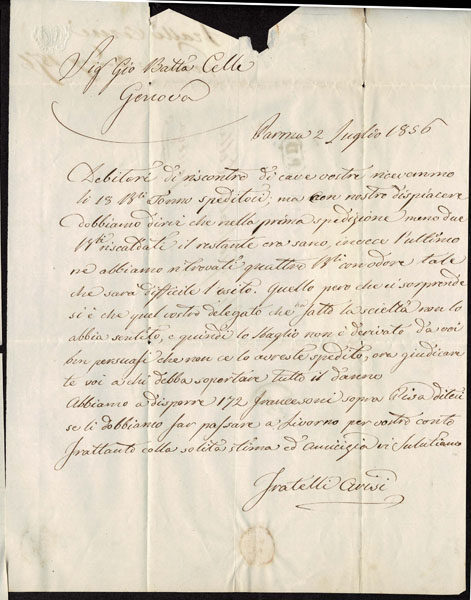 Sig Gio Batta Celle
Genova
Parma 2 Luglio 1856
Debitori di riscontro di care vostre ricevemmo
li 13 Bli Tonno speditoci; ma con nostro dispiacere
dobbiamo dirvi che nella prima spedizione meno due
Bli riscaldate il restante era sano, invece l'ultimo
ne abbiamo ritrovati quattro Bli con odore tale
che sarà difficile l'esito. Quello però che ci sorprende
si è che quel vostro delegato che ha fatto la scieltà non lo
abbia sentito, e quindi lo sbaglio non è derivato da voi
ben persuasi che non ce lo avreste spedito, ora giudicare
te voi a chi debba soportare tutto il danno
Abbiamo a disporre 172 Francesconi sopra Pisa diteci
se li dobbiamo far passare a Livorno per vostro conto
Frattanto colla solita stima ed amicizia vi salutiamo
Fratelli